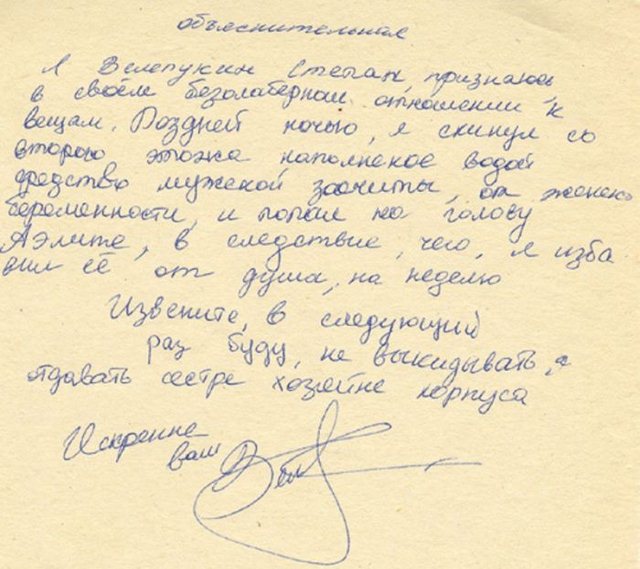 объяснительная
Я Велепукин Степан, признаюсь
в своём безолаберном отношении к
вещам. Поздней ночью, я скинул со
второго этожа наполненое водой
средство мужской защиты, от женской
беременности, и попал на голову
Аэлите, в следствие, чего, я изба
вил её от душа, на неделю
Извените, в следующий
раз буду, не выкидывать, а
отдавать сестре хозяйке корпуса
Искренне
ваш Вел